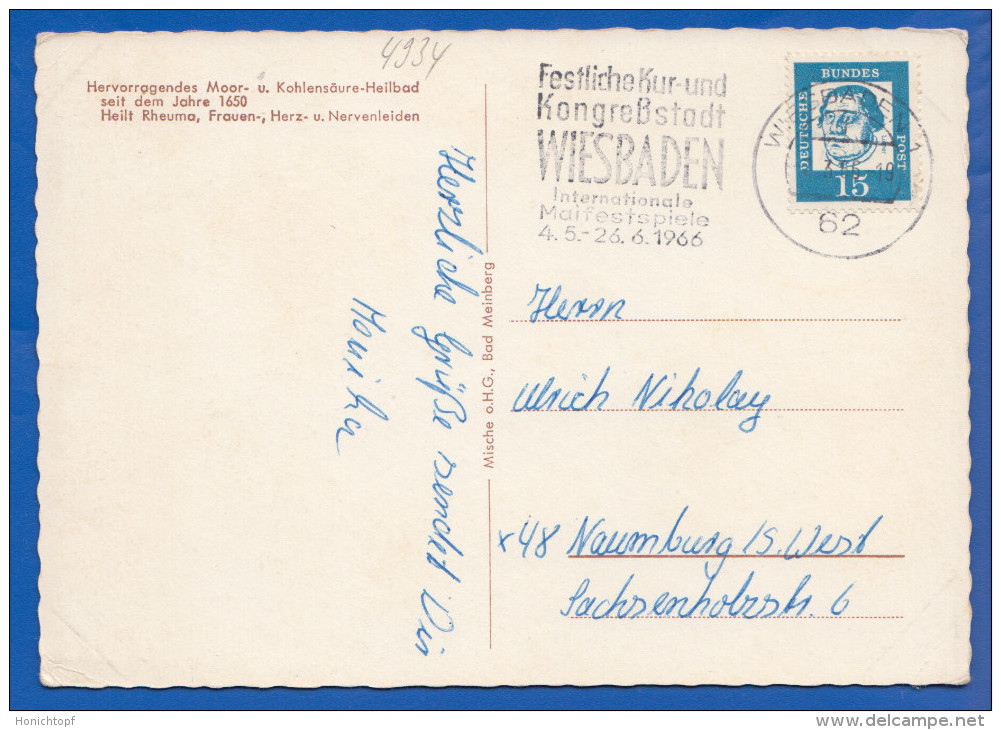 4934
Hervorragendes Moor- u. Kohlensäure-Heilbad
seit dem Jahre 1650
Heilt Rheuma, Frauen-, Herz- u. Nervenleiden
Festliche Kur- und
Kongreßstadt
WIESBADEN
Internationale
Maifestspiele
4.5.-26.6.1966
WIESBADEN 1
62
DEUTSCHE
BUNDES
POST
15
Herzliche Grüße sendet Dir
Monika
Mische o.H.G., Bad Meinberg
Herrn
Ulrich Nikolay
x48 Naumburg /S. West
Sachsenholzstr. 6
Honichtopf
www.delcampe.net